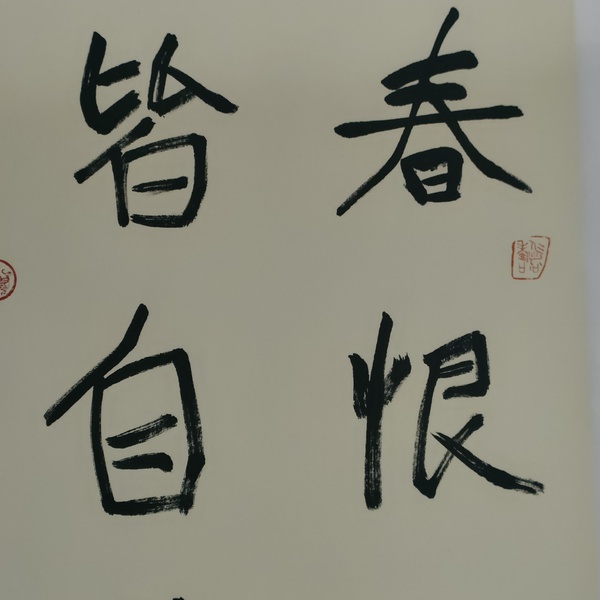 春恨
皆自